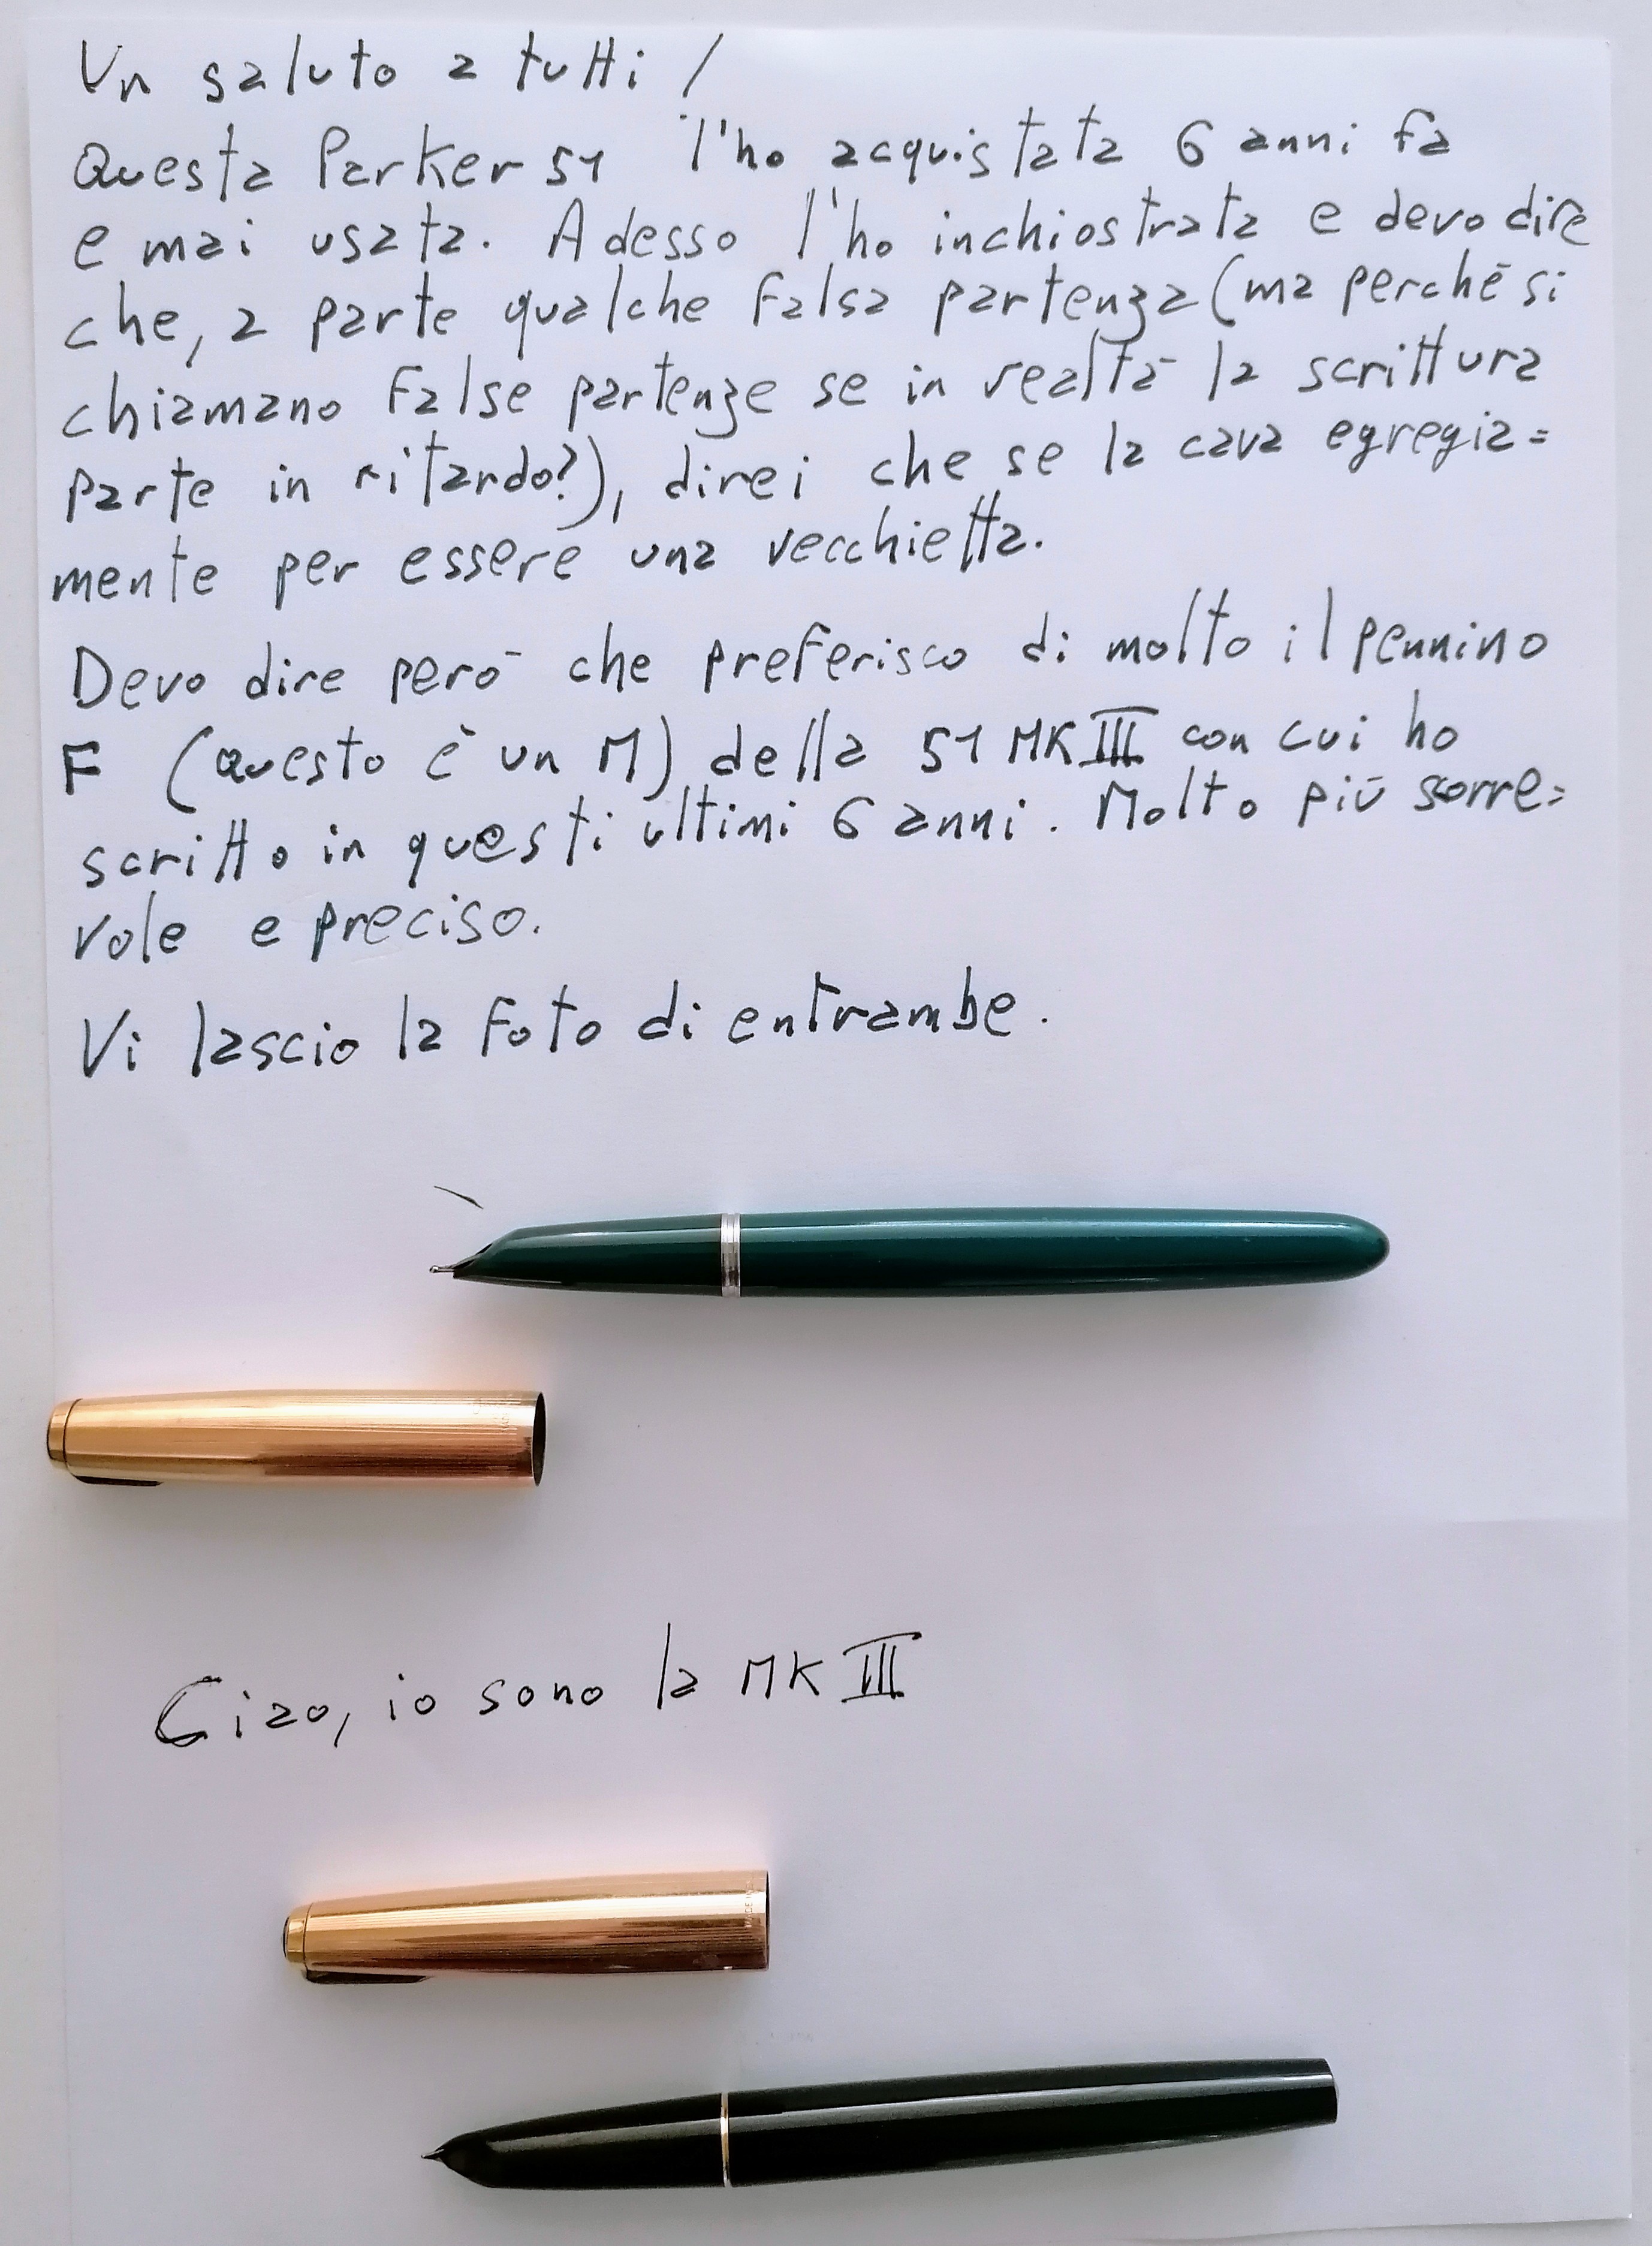 Un saluto a tutti!
Questa Parker 51 l'ho acquistata 6 anni fa
e mai usata. Adesso l'ho inchiostrata e devo dire
che, a parte qualche falsa partenza (ma perché si
chiamano false partenze se in realtà la scrittura
parte in ritardo?), direi che se la cava egregia=
mente per essere una vecchietta.
Devo dire però che preferisco di molto il pennino
F (questo è un M) della 51 MK III con cui ho
scritto in questi ultimi 6 anni. Molto più scorre=
vole e preciso.
Vi lascio la foto di entrambe.
Ciao, io sono la MK III